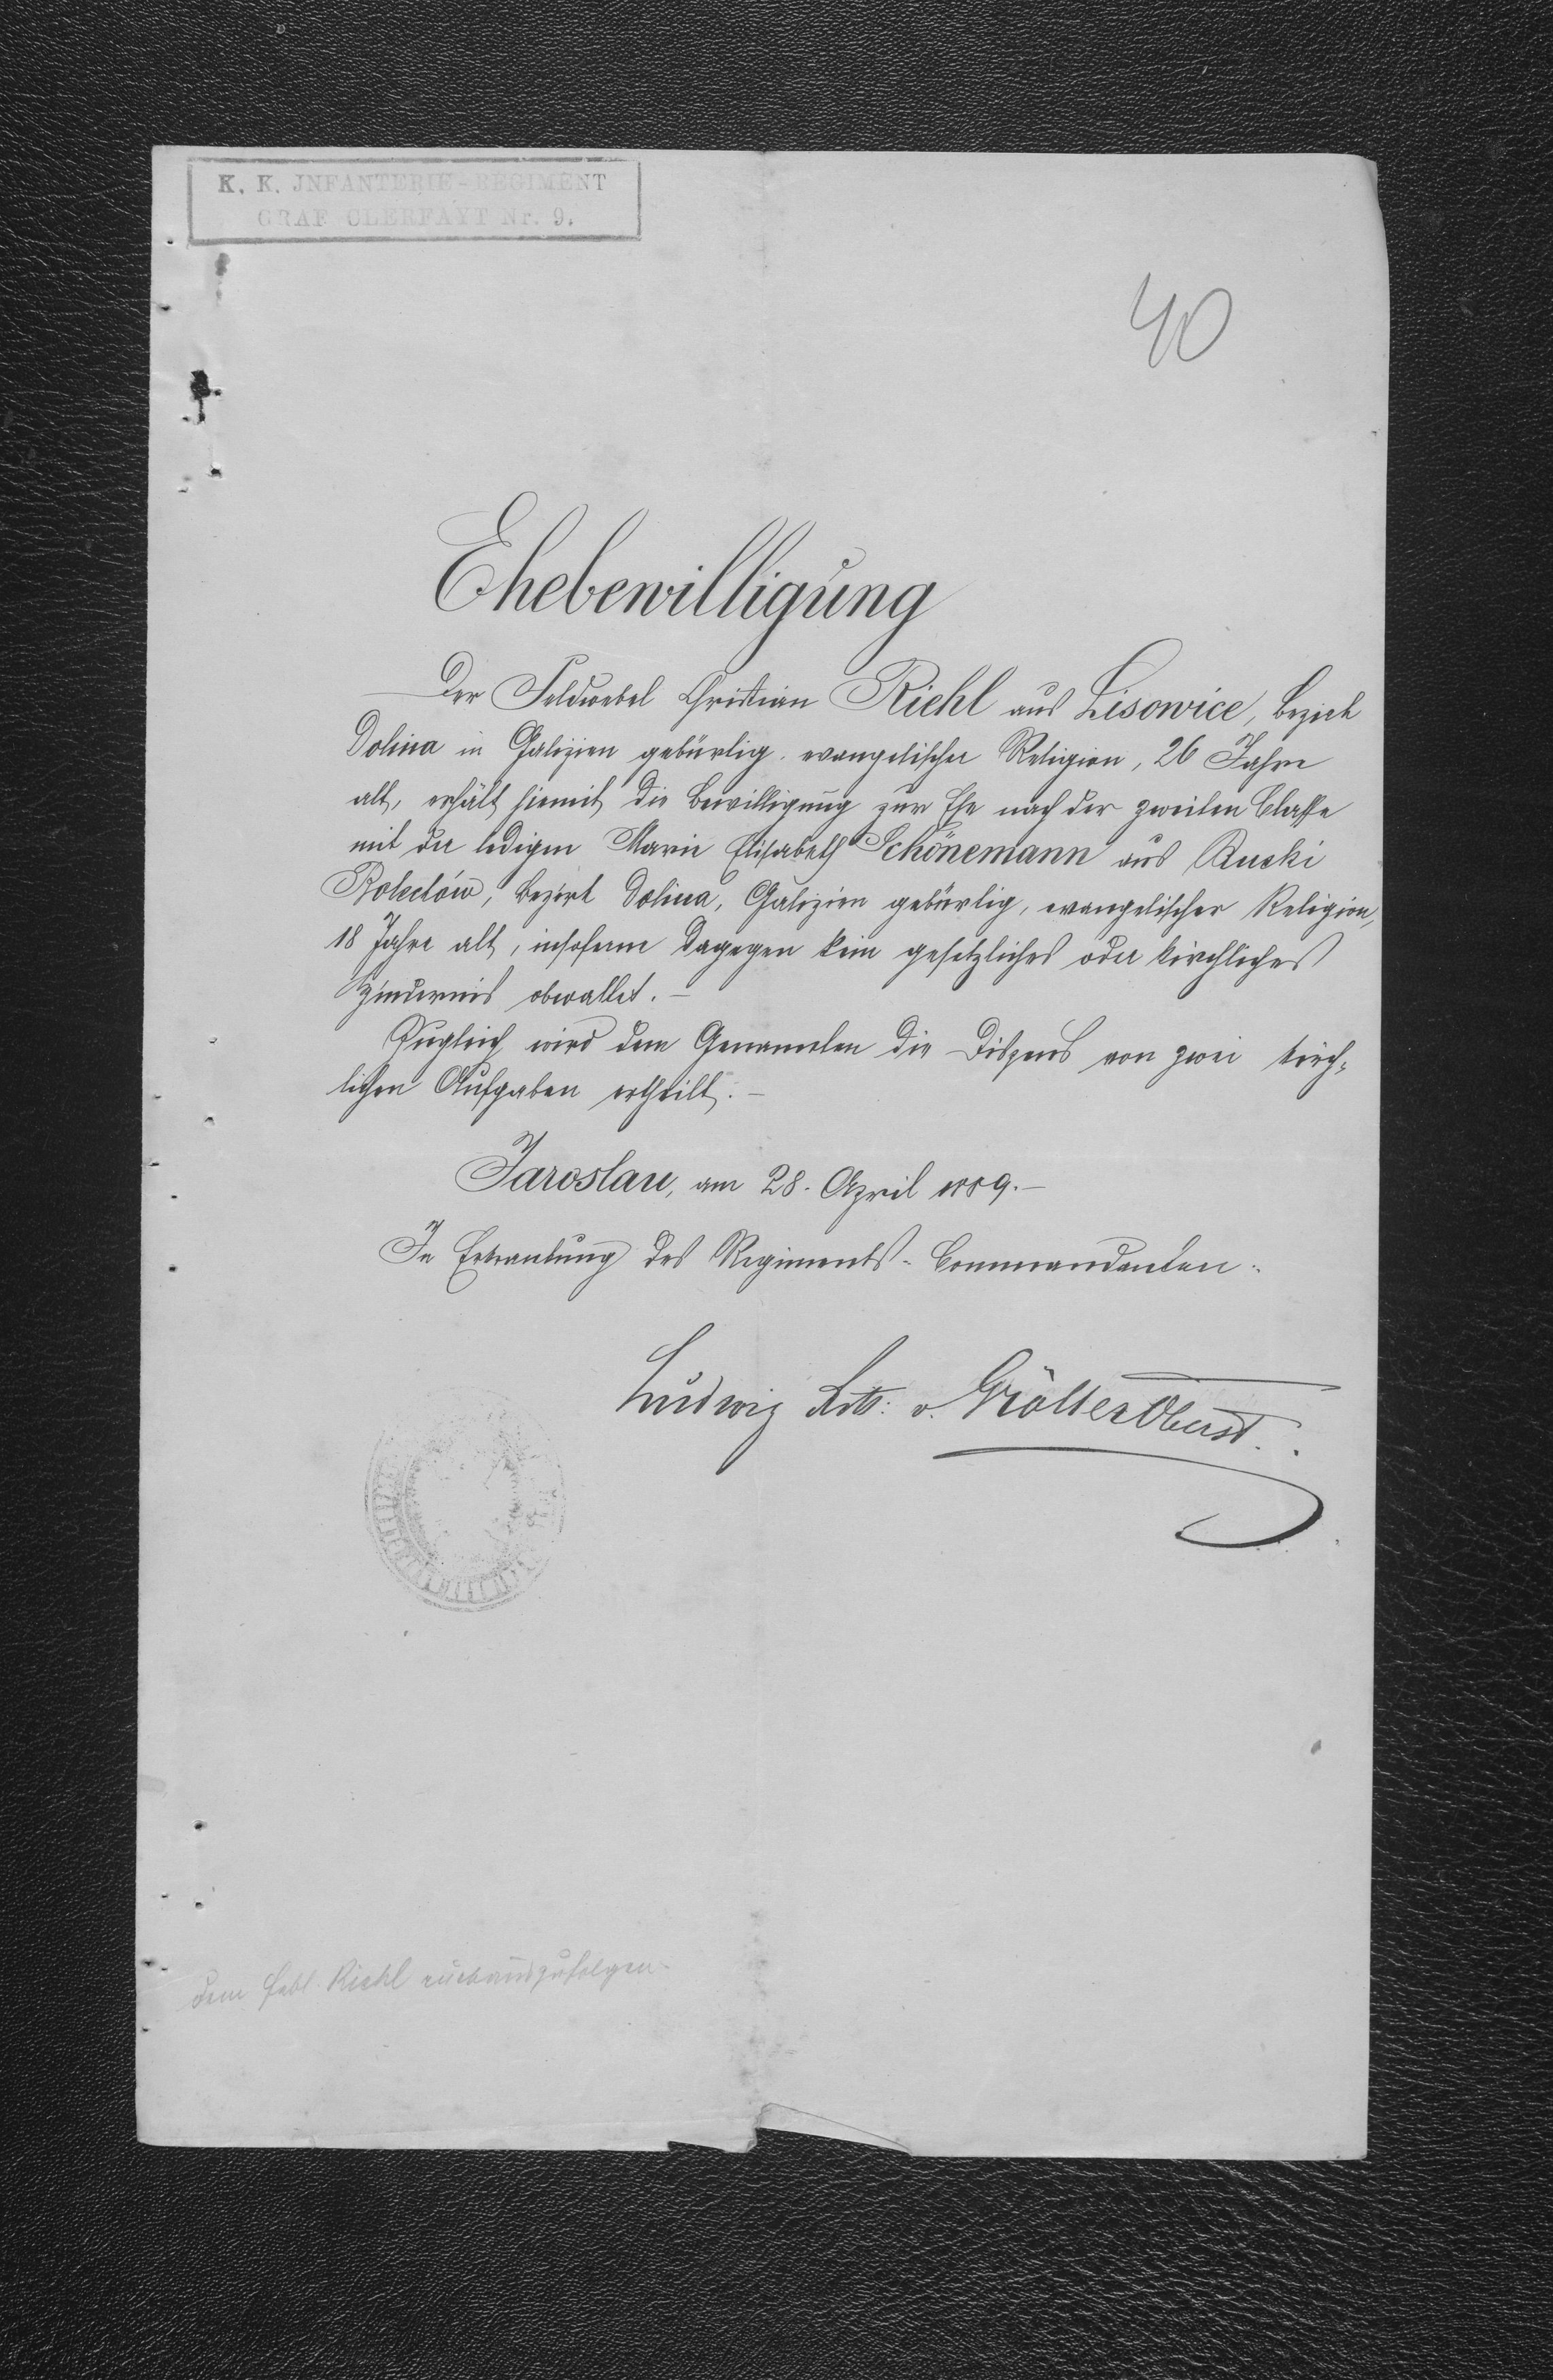 K. K. JNFANTERIE-REGIMENT
GRAF CLERFAYT Nr. 9.
40
Ehebewilligung
Der Feldwebel Christian Riehl aus Lisowice, Bezirk
Dolina in Galizien gebürtig, evangelischer Religion, 26 Jahre
alt, erhält hiemit die Bewilligung zur Ehe nach der zweiten Classe
mit der ledigen Marie Elisabeth Schönemann aus Ruski
Bolechów, Bezirk Dolina, Galizien gebürtig, evangelischer Religion,
18 Jahre alt, insoferne dagegen kein gesetzliches oder kirchliches
Hindernis obwaltet.—
Zugleich wird dem Genannten die Dispens von zwei kirch-
lichen Aufgaben ertheilt.—
Jaroslau, am 28. April 1889.—
In Ertrankung des Regiments-Commandanten:
Ludwig Rtt: v. Oberst.
dem Fdbl. Riehl rückauszufolgen.